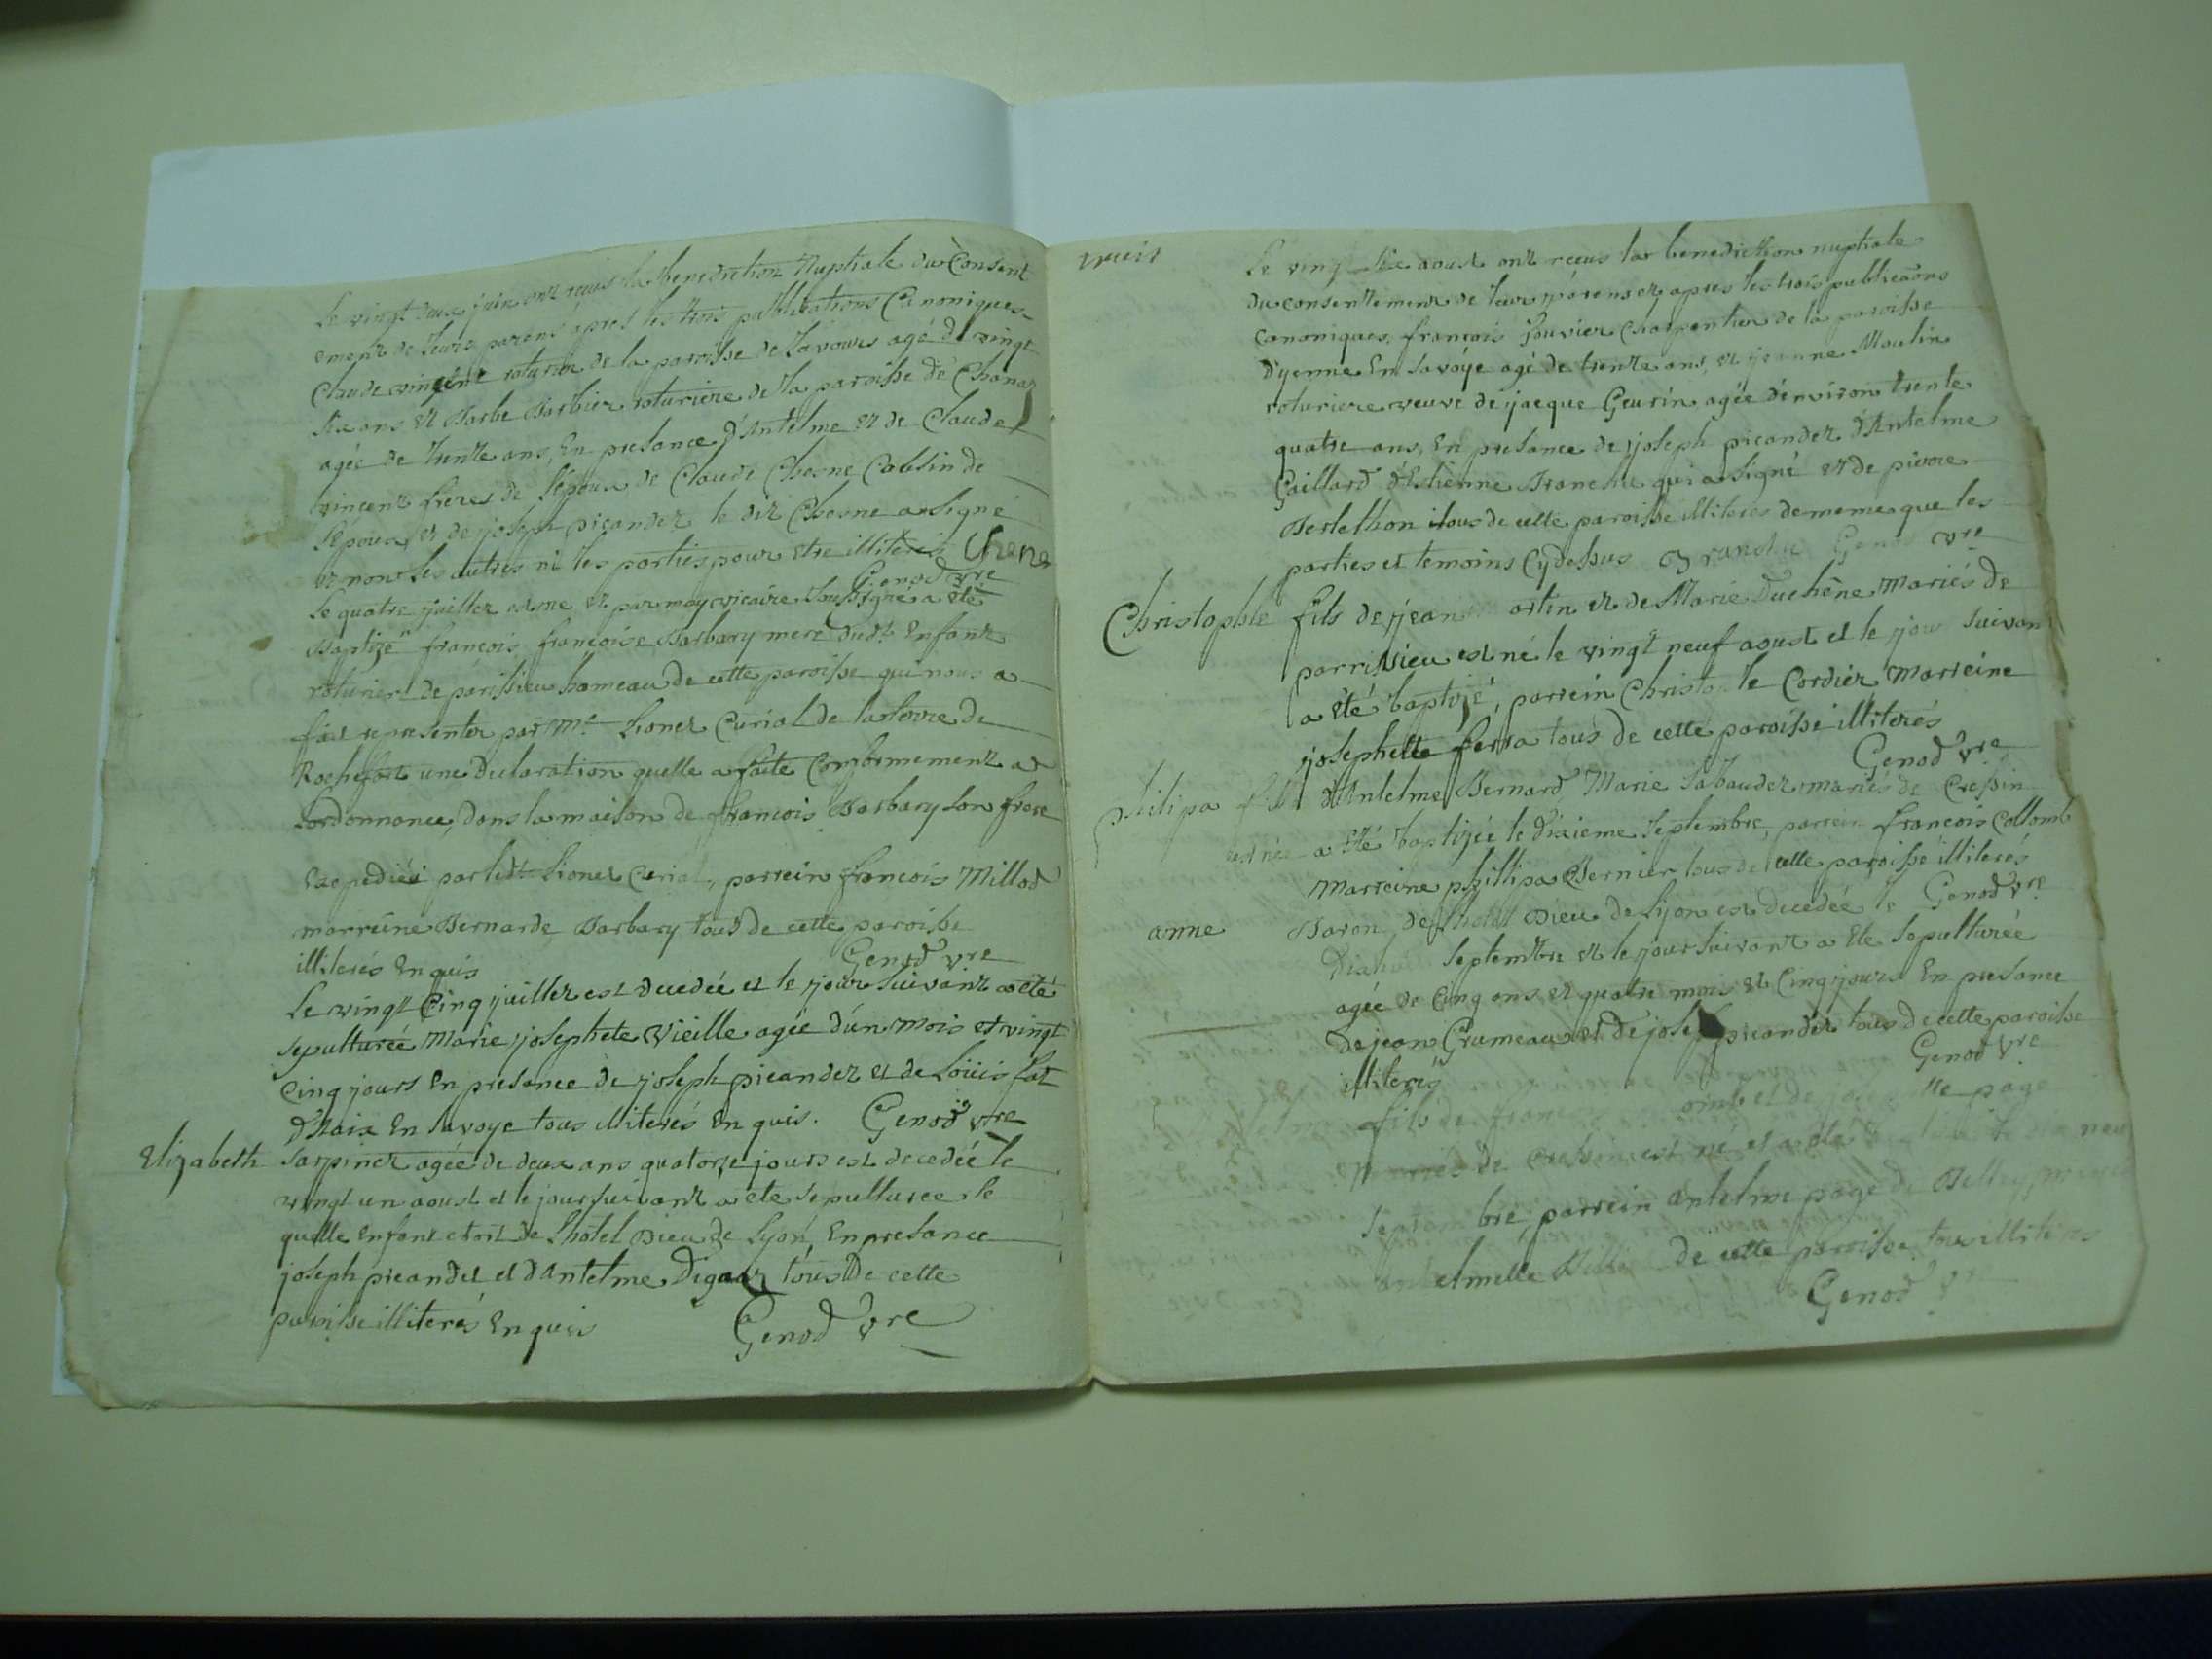 Le vingt deux juin ont reçus la benediction Nuptiale du Consent
ement de leurs parens apres les trois publications Canoniques
Claude vincent roturier de la paroisse de Lavours agé de vingt
six ans et Barbe Barbier roturiere de la paroisse de Chanaz
agée de trente ans, En presance d'Antelme et de Claude
vincent freres de l'epoux de Claude Chesne Cousin de
l'epoux, et de joseph picandet le dit Chesne a signé
et non les autres ni les parties pour etre illiterés Chene
Genod vre
Le quatre juillet est né et par moy vicaire soussigné a eté
Baptizé françois, françoise Barbary mere dudt Enfant
roturier de parissieu hameau de cette paroisse qui nous a
fait representer par Me Lionet Curial de la terre de
Rochefort une declaration quelle a faite Conformement a
lordonnance, dans la maison de françois Barbary son frere
Expediée par ledt Lionet Curial, parrein françois Millod
marreine Bernarde Barbary tous de cette paroisse
illiterés Enquis Genod vre
Le vingt Cinq juillet est decedée et le jour suivant a eté
sepulturée Marie josephete Vieille agée d'un mois et vingt
Cinq jours En presance de joseph picandet et de Loüis
d'Aix En Savoye tous illiterés Enquis. Genod vre
Elizabeth Sarpinet agée de deux ans quatorze jours est decedée le
vingt un aoust et le jour suivant a eté sepulturee le
quelle Enfant etoit de l'hotel Dieu de Lyon, En presance
joseph picandet et d'Antelme Digaz tous De cette
paroisse illiterés Enquis Genod vre
Le vingt six aoust ont reçus la benediction nuptiale
du consentement de leur parens et apres les trois publicaõns
canoniques, françois Jouvier Charpentier de la paroisse
d'yenne En Savoye agé de trente ans, et jeanne Moulin
roturiere veuve de jacque Geurin agée d'environ trente
quatre ans, En presance de joseph picandet d'Antelme
Gaillard d'Estienne qui a signé et de pierre
Berlethon tous de cette paroisse illiterés de meme que les
parties et temoins Cy dessus Genod vre
Christophle fils de jean et de Marie Duchêne Mariés de
parrissieu est né le vingt neuf aoust et le jour suivant
a eté baptizé, parrein Christophle Cordier Marreine
josephette ferra tous de cette paroisse illiterés
Genod vre
philipa fille d'Antelme Bernard Marie Sabaudet mariés de Cressin
est née a eté baptizée le dixieme Septembre, parrein françois Collomb
Marreine phillipa Bernier tous de cette paroisse illiterés
Genod vre
anne Baron, de l'hotel Dieu de Lyon est decedée le
septembre et le jour suivant a ete sepulturée
agée de Cinq ans et quatre mois et Cinq jours En presance
de jean Grumeau et de joseph picandet tous de cette paroisse
illiterés Genod vre
fils de et de page
Mariés de Cressin est né et a eté neuf
septembre, parrein Antelme page de
de cette paroisse tous illiterés
Genod vre